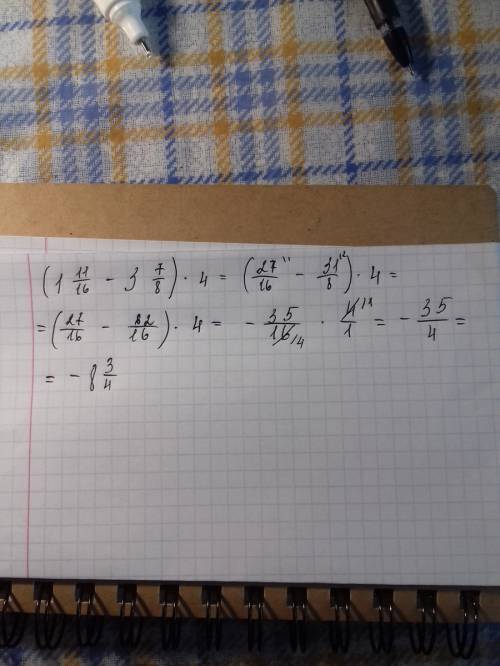 (1 11/16 - 3 7/8) · 4 = (27/16 ^{\1} - 31/8 ^{\2}) · 4 =
= (27/16 - 62/16) · 4 = - 35/16 /4 · 4/1 ^{\1} = - 35/4 =
= - 8 3/4